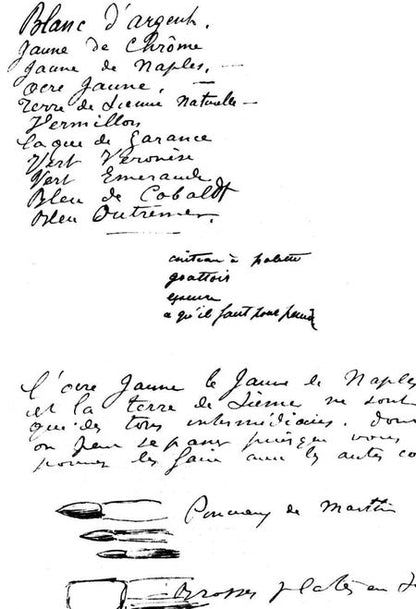 Blanc d'argent.
Jaune de Chrôme
Jaune de Naples, —
Ocre Jaune, —
Terre de Sienne Naturelle —
Vermillon
Laque de Garance
Vert Véronèse
Vert Emeraude
Bleu de Cobaldt
Bleu Outremer.
couteau à palette
grattoir
essence
ce qu'il faut pour peindre
L'ocre Jaune le Jaune de Naples
et la terre de Sienne ne sont
que des tons intermédiaires. dont
on peut se passer puisque vous
pouvez les faire avec les autres co
Pinceaux de Marttre
Brosses plates en